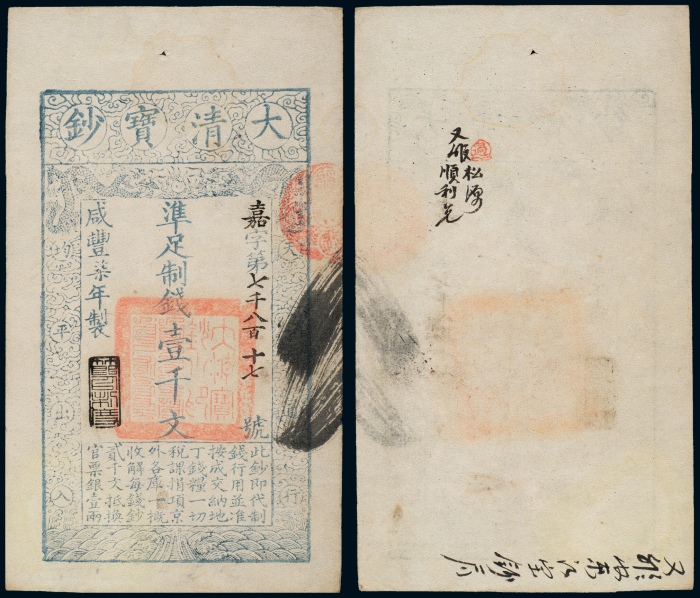 大清寶鈔
天行
嘉字第七千八百十七號
準足制錢壹千文
咸豐柒年製
均平出入
此鈔即代制
錢行用並准
按成交納地
丁錢糧一切
稅課捐項京
外各庫一概
收解每錢鈔
貳千文抵換
官票銀壹兩
松
又
順利
又